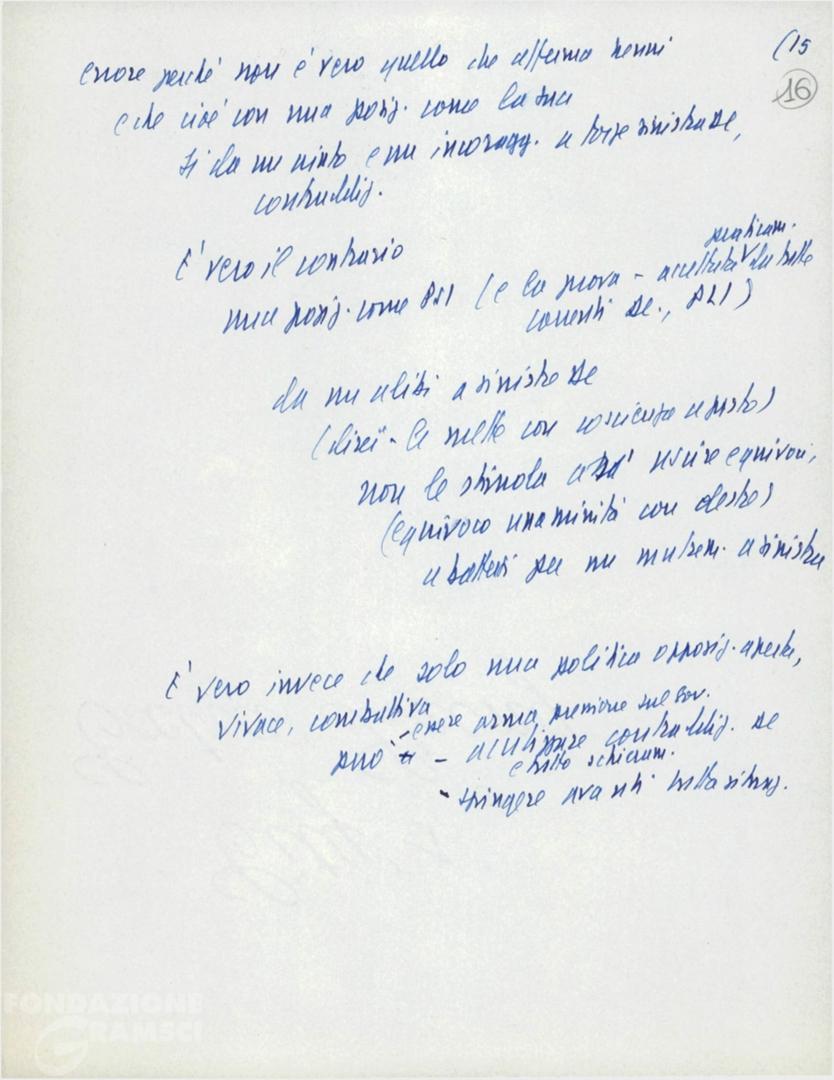 (15
16
errore perché non è vero quello che afferma Nenni
e che cioè con una posiz. come la sua
si dà un aiuto e un incoragg. a forze sinistra DC,
contraddiz.
È vero il contrario
una posiz. come PSI (e la prova - accettata praticam. da tutte
correnti DC., PLI)
dà un alibi a sinistre DC
(direi - le mette con coscienza a posto)
non le stimola ad uscire equivoci,
(equivoco unanimità con destre)
a battersi per un mutam. a sinistra
È vero invece che solo una politica opposiz. aperta,
vivace, combattiva
può - essere arma pressione sul gov.
- acutizzare contraddiz. DC
e tutto schieram.
- spingere avanti tutta situaz.
FONDAZIONE
GRAMSCI